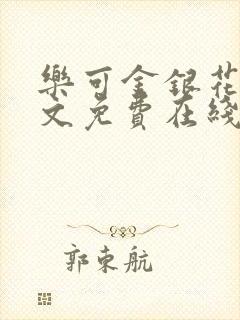 樂可金銀花
文免費在綫
郭東航